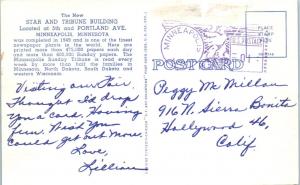 The New
STAR AND TRIBUNE BUILDING
Located at 5th and PORTLAND AVE.
MINNEAPOLIS, MINNESOTA
was completed in 1949 and is one of the finest
newspaper plants in the world. Here are
printed more than 475,000 papers each day
and more than 600,000 Sunday papers. The
Minneapolis Sunday Tribune is read every
week by more than half the families in
Minnesota, North Dakota, South Dakota and
western Wisconsin.
Visiting our Fair.
Thought I'd drop
you a card. Having
fun. Wish you
could get out more.
Love,
Lillian
MINNEAPOLIS
PLACE
STAMP
HERE
POSTCARD
Peggy Mc Millan
916 N. Sierra Bonita
Hollywood 46,
Calif.